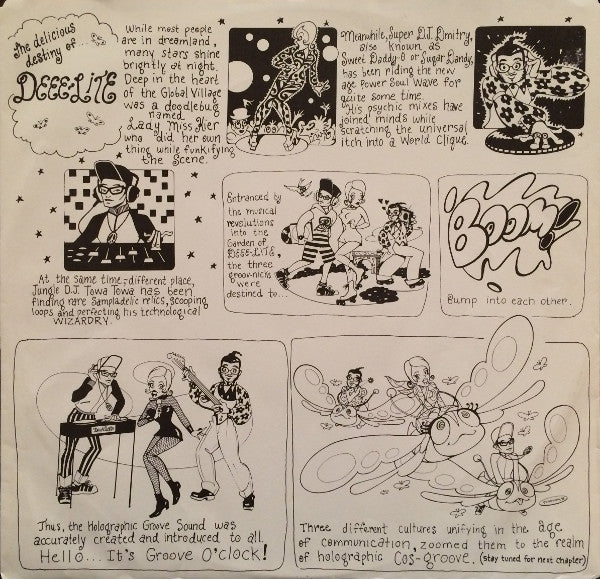 The delicious
destiny of...
DEEE-LITE
While most people
are in dreamland,
many stars shine
brightly at night.
Deep in the heart
of the Global Village
was a doodlebug
named
Lady Miss Kier
who did her own
thing while funkifying
the Scene.
Meanwhile, Super D.J. Dmitry,
also known as
Sweet Daddy-O or Sugar Dandy,
has been riding the new
age Power Soul Wave for
quite some time.
His psychic mixes have
joined minds while
scratching the universal
itch into a World Clique.
At the same time, different place,
Jungle D.J. Towa Towa has been
finding rare Sampladelic relics, scooping
loops and perfecting his technological
WIZARDRY.
Entranced by
the musical
revolutions
into the
Garden of
DEEE-LITE,
the three
groov-nicks
were
destined to...
BOOM!
Bump into each other.
Thus, the Holographic Groove Sound was
accurately created and introduced to all.
Hello... It's Groove O'clock!
Three different cultures unifying in the age
of communication, zoomed them to the realm
of holographic Cos-groove. (stay tuned for next chapter)